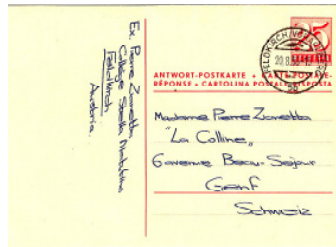 Ex. Pierre Zanetta
Collège Stella Matutina
Feldkirch
Austria
25
FELDKIRCH
ANTWORT-POSTKARTE
RÉPONSE - CARTOLINA POSTALE RISPOSTA
Madame Pierre Zanetta
"La Colline"
6 avenue Beau-Sejour
Genf
Schweiz